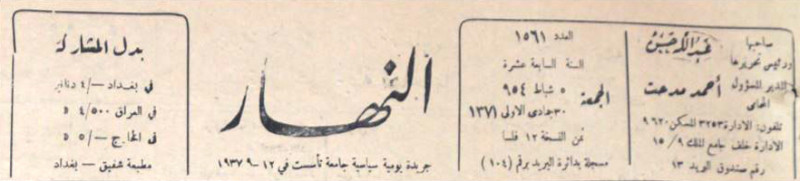 صاحبها
ورئيس تحريرها
عبدالله حسين
المدير المسؤول أحمد مدحت
المحامي
تلفون: الادارة ٣٢٥٣ المسكن ٩٦٢٠
الادارة خلف جامع الملك ٩/ ١٥
رقم صندوق البريد ١٣
العدد ١٥٦١
السنة السابعة عشرة
الجمعة
٥ شباط ٩٥٤
٣٠ جمادى الاولى ١٣٧١
ثمن النسخة ١٢ فلسا
مسجلة بدائرة البريد برقم (١٠٤)
النهار
جريدة يومية سياسية جامعة تأسست في ١٢-٩-١٩٣٧
بدل المشاركة
في بغداد —/٤ دنانير
في العراق ٤/٥٠٠ »
في الخارج —/٥ »
مطبعة شفيق — بغداد